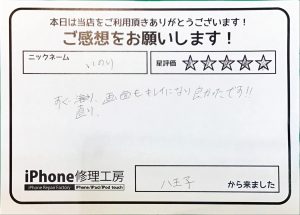 本日は当店をご利用頂きありがとうございます!
ご感想をお願いします!
ニックネーム
いのり
星評価 ☆☆☆☆☆
すぐ直り、画面もキレイになり良かったです!!
iPhone修理工房
iPhone Repair Factory iPhone/iPad/iPod touch
八王子 から来ました